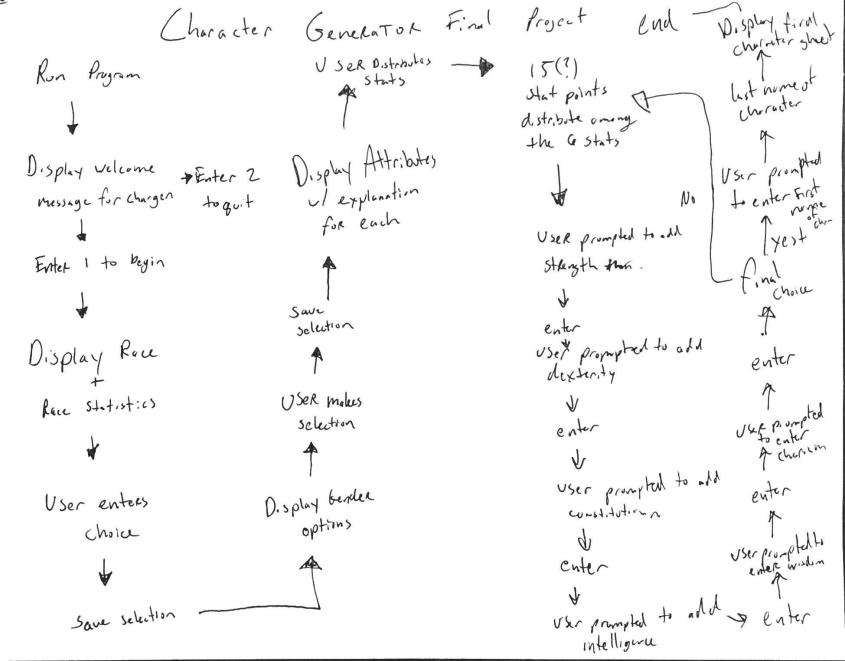 Character Generator Final Project
Run Program
Display welcome
message for chargen
Enter 2
to quit
Enter 1 to begin
Display Race
+
Race Statistics
User enters
choice
Save selection
Display Gender
options
User makes
selection
Save
selection
Display Attributes
w/ explanation
for each
User Distributes
Stats
15(?)
Stat points
distribute among
the 6 stats
User prompted to add
strength
enter
User prompted to add
dexterity
enter
User prompted to add
constitution
enter
User prompted to add
intelligence
enter
User prompted to
enter wisdom
enter
User prompted
to enter
enter
final
choice
No
Yes
User prompted
to enter First
name
of
last name of
character
Display final
character sheet
end